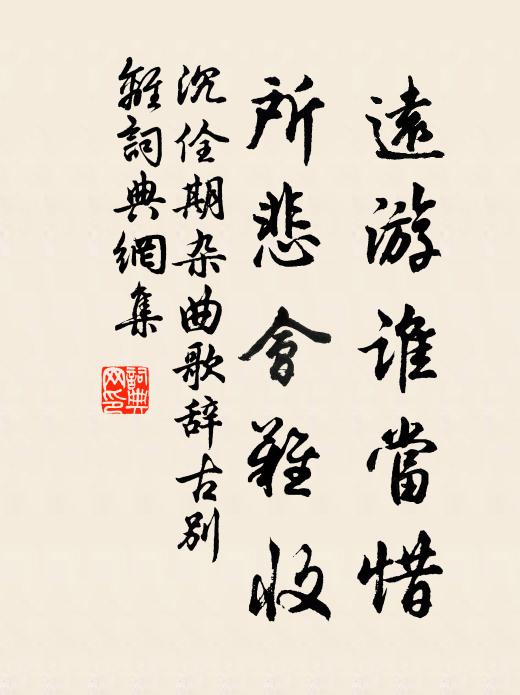 遠游誰當惜
所悲會難收
沉佺期杂曲歌辞古別
離詞典網集
詞典
网印